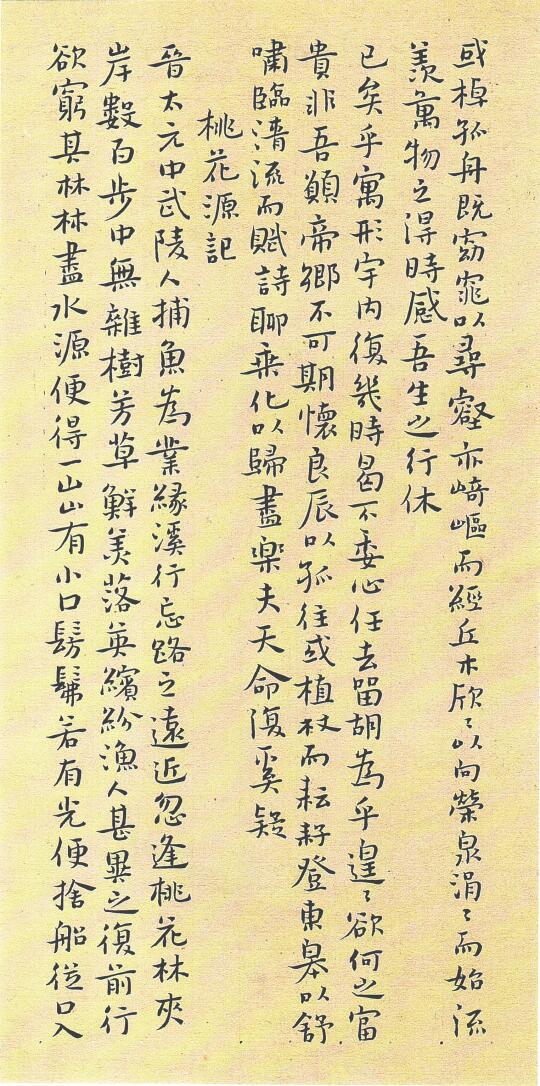 或棹孤舟既窈窕以尋壑亦崎嶇而經丘木欣〻以向榮泉涓〻而始流
羨萬物之得時感吾生之行休
已矣乎寓形宇內復幾時曷不委心任去留胡為乎遑〻欲何之富
貴非吾願帝鄉不可期懷良辰以孤往或植杖而耘耔登東皋以舒
嘯臨清流而賦詩聊乘化以歸盡樂夫天命復奚疑
桃花源記
晉太元中武陵人捕魚為業緣溪行忘路之遠近忽逢桃花林夾
岸數百步中無雜樹芳草鮮美落英繽紛漁人甚異之復前行
欲窮其林林盡水源便得一山山有小口髣髴若有光便捨船從口入